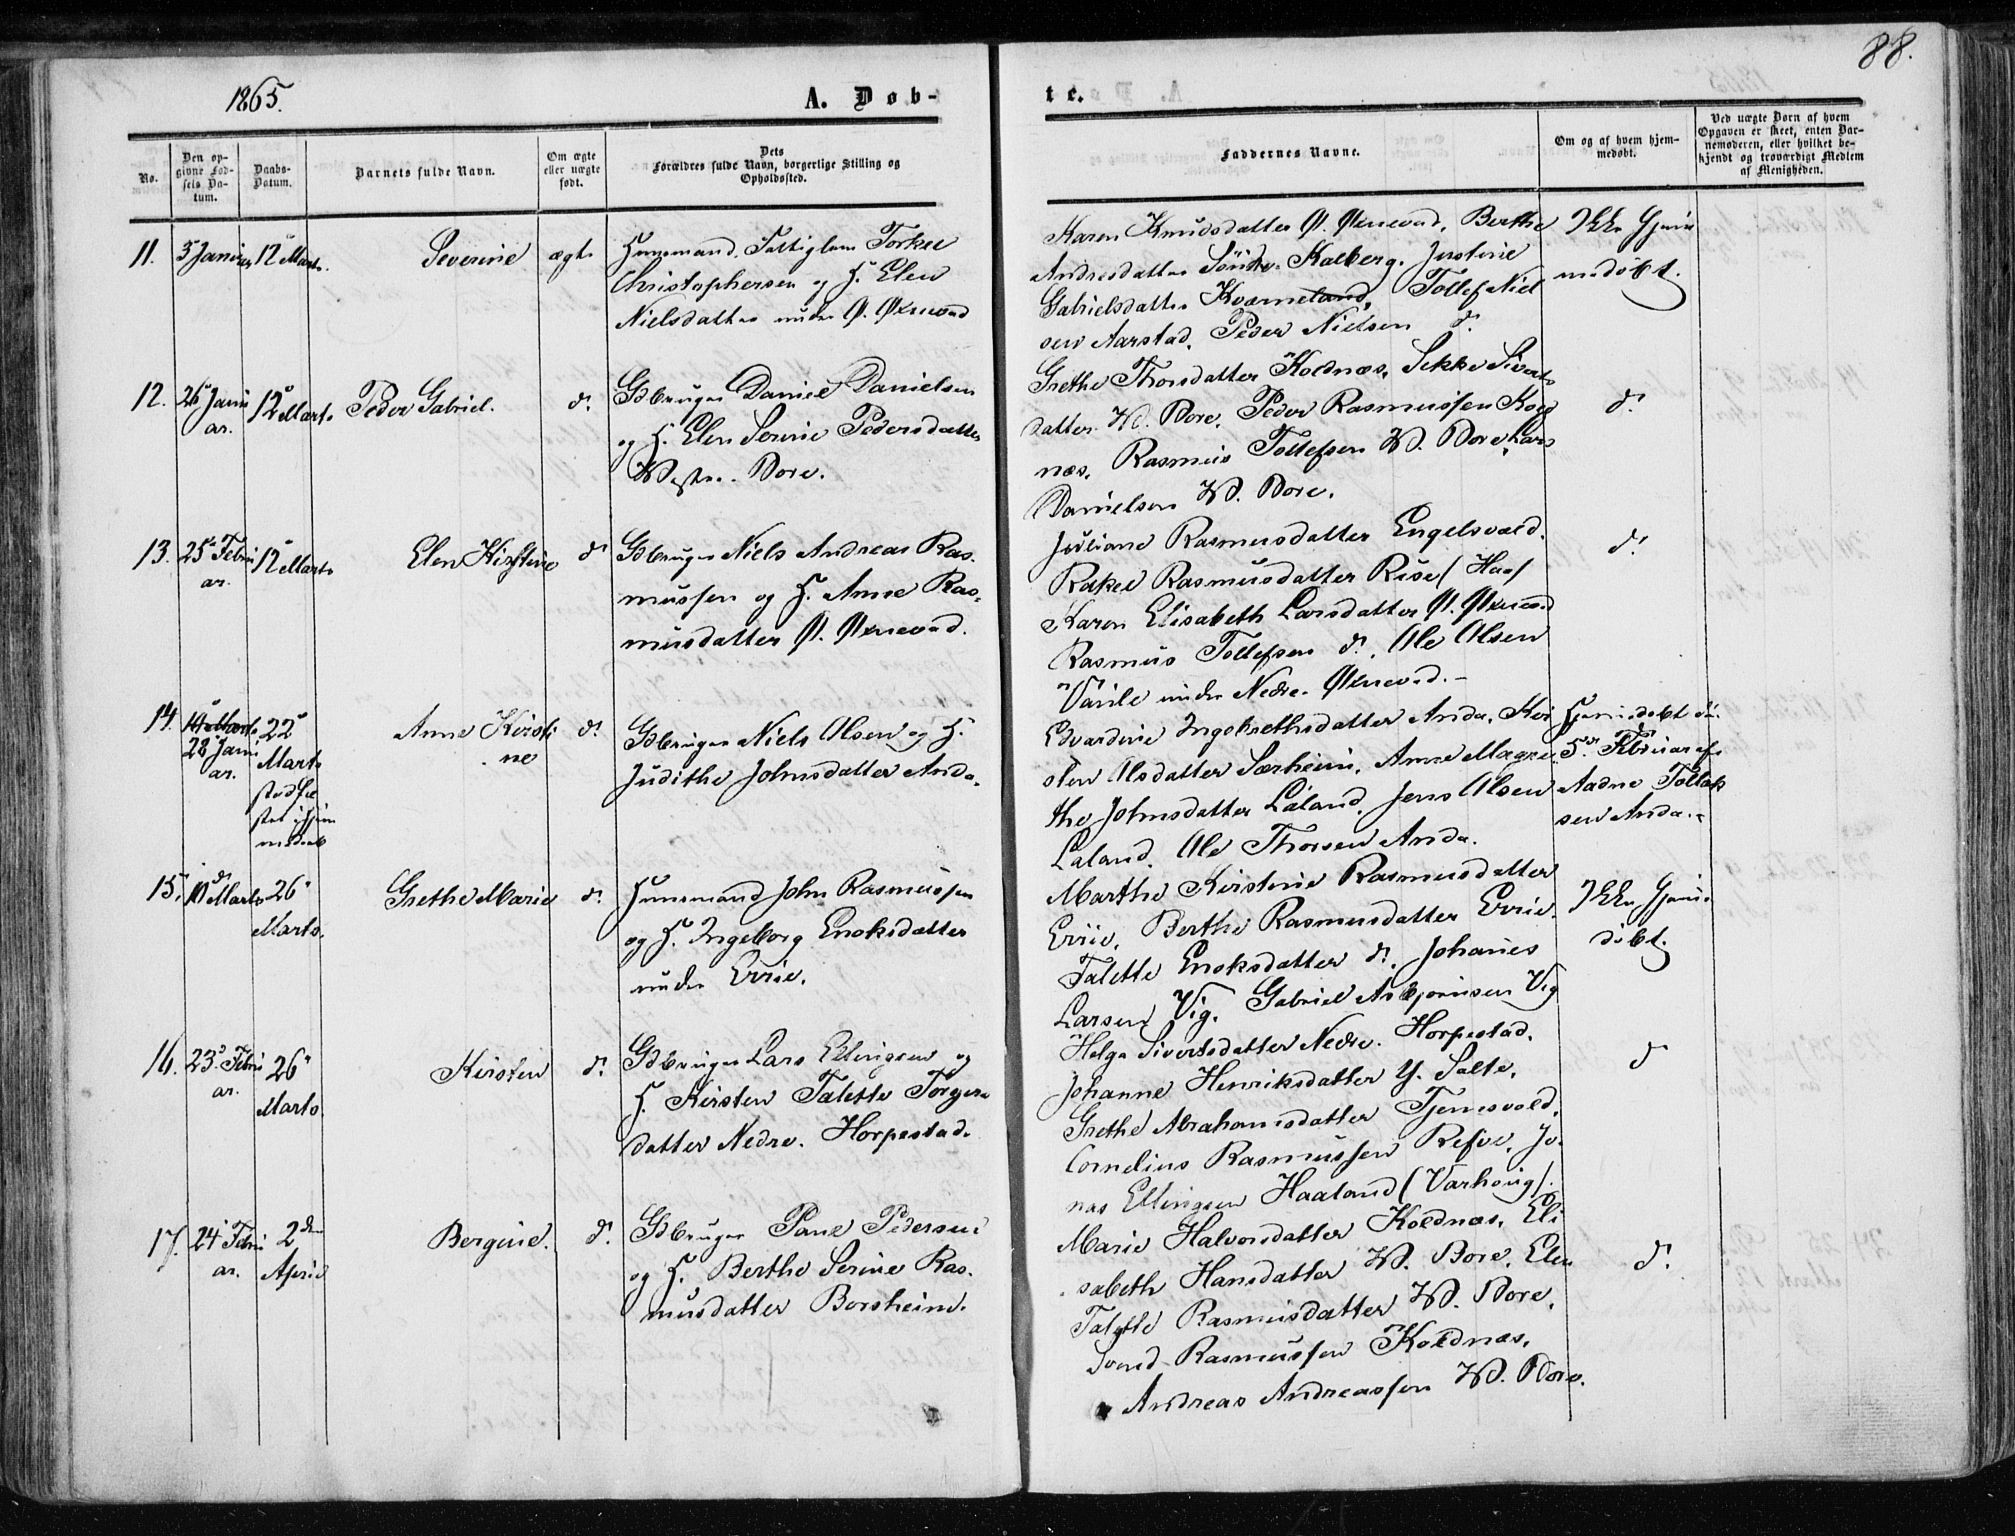 88.
1865.
A. Døb-
te.
No.
Den op-
givne Fød-
sels Da-
tum.
Daabs-
Datum.
Barnets fulde Navn.
Om ægte
eller uægte
født.
Dets
Forældres fulde Navn, borgerlige Stilling og
Opholdssted.
Faddernes Navne.
Om og af hvem hjem-
medøbt.
Ved uægte Børn af hvem
Opgaven er skeet, enten Bar-
nemoderen, eller hvilket be-
kjendt og troværdigt Medlem
af Menigheden.
11.
12 Marts.
Severine
ægte
Huusmand, Fattiglem Torkel
Christophersen og H. Elen
Nielsdatter under Ø. Øxnevad
Karen Knudsdatter Ø. Øxnevad, Berthe
Andreasdatter Søndre Kalberg. Justine
Gabrielsdatter Kværneland, Tollef Niel
sen Aarstad, Peder Nielsen d.
Ikke hjem
medøbt.
12.
26 Janu
ar.
12 Marts
Peder Gabriel.
d.
Gbruger Daniel Danielsen
og H. Elen Serine Pedersdatter
Westre. Bore.
Grethe Thorsdatter Koldnæs, Sekke Siverts
datter W. Bore, Peder Rasmussen Kold
næs, Rasmus Tollefsen W. Bore, Lars
Danielsen W. Bore.
d.
13.
25 Febru
ar.
12 Marts
Elen Kirstine
d.
Gbruger Niels Andreas Ras-
mussen og H. Anne Ras-
musdatter Ø. Øxnevad.
Juliane Rasmusdatter Engelsvold.
Rakel Rasmusdatter Riise / Haa /
Karen Elisabeth Larsdatter Ø. Øxnevad
Rasmus Tollefsen d. Ole Olsen
under Nedre Øxnevad.
d.
14.
28 Janu
ar.
22
Marts
stadfæ
stet hjem
medaab
Anne Kirsti
ne
d.
Gbruger Niels Olsen og H.
Judithe Johnsdatter Anda.
Edvardine Ingebrethsdatter Anda, Kir
sten Olsdatter Særheim, Anne Magre
the Johnsdatter Laland, Jens Olsen
Laland, Ole Thorsen Anda.
Hjemmedøbt d.
5 Februar af
Aadne Tollak
sen Anda.
15.
10 Marts
26
Marts.
Grethe Marie
d.
Huusmand John Rasmussen
og H. Ingeborg Enoksdatter
under Ervie.
Marthe Kirstine Rasmusdatter
Ervie, Berthe Rasmusdatter Ervie.
Talette Enoksdatter d. Johanes
Larsen Vig. Gabriel Asbjørnsen Vig
Ikke hjem
døbt.
16.
23 Febru
ar.
26
Marts
Kirsten
d.
Gbruger Lars Ellingsen og
H. Kirsten Talette Torgers
datter Nedre. Horpestad.
Helga Sivertsdatter Nedre. Horpestad.
Johanne Henriksdatter Y. Salte,
Grethe Abrahamsdatter Tjemsvold,
Cornelius Rasmussen Refve, Jo-
nas Ellingsen Haaland (Varhoug).
d
17.
24 Febru
ar.
2den
April
Bergine.
d.
Gbruger Paul Pedersen
og H. Berthe Serine Ras-
musdatter Borsheim.
Marie Halvorsdatter Koldnæs, Eli
sabeth Hansdatter W. Bore, Elen
Talette Rasmusdatter W. Bore,
Svend Rasmussen Koldnæs,
Andreas Andreassen W. Bore.
d.